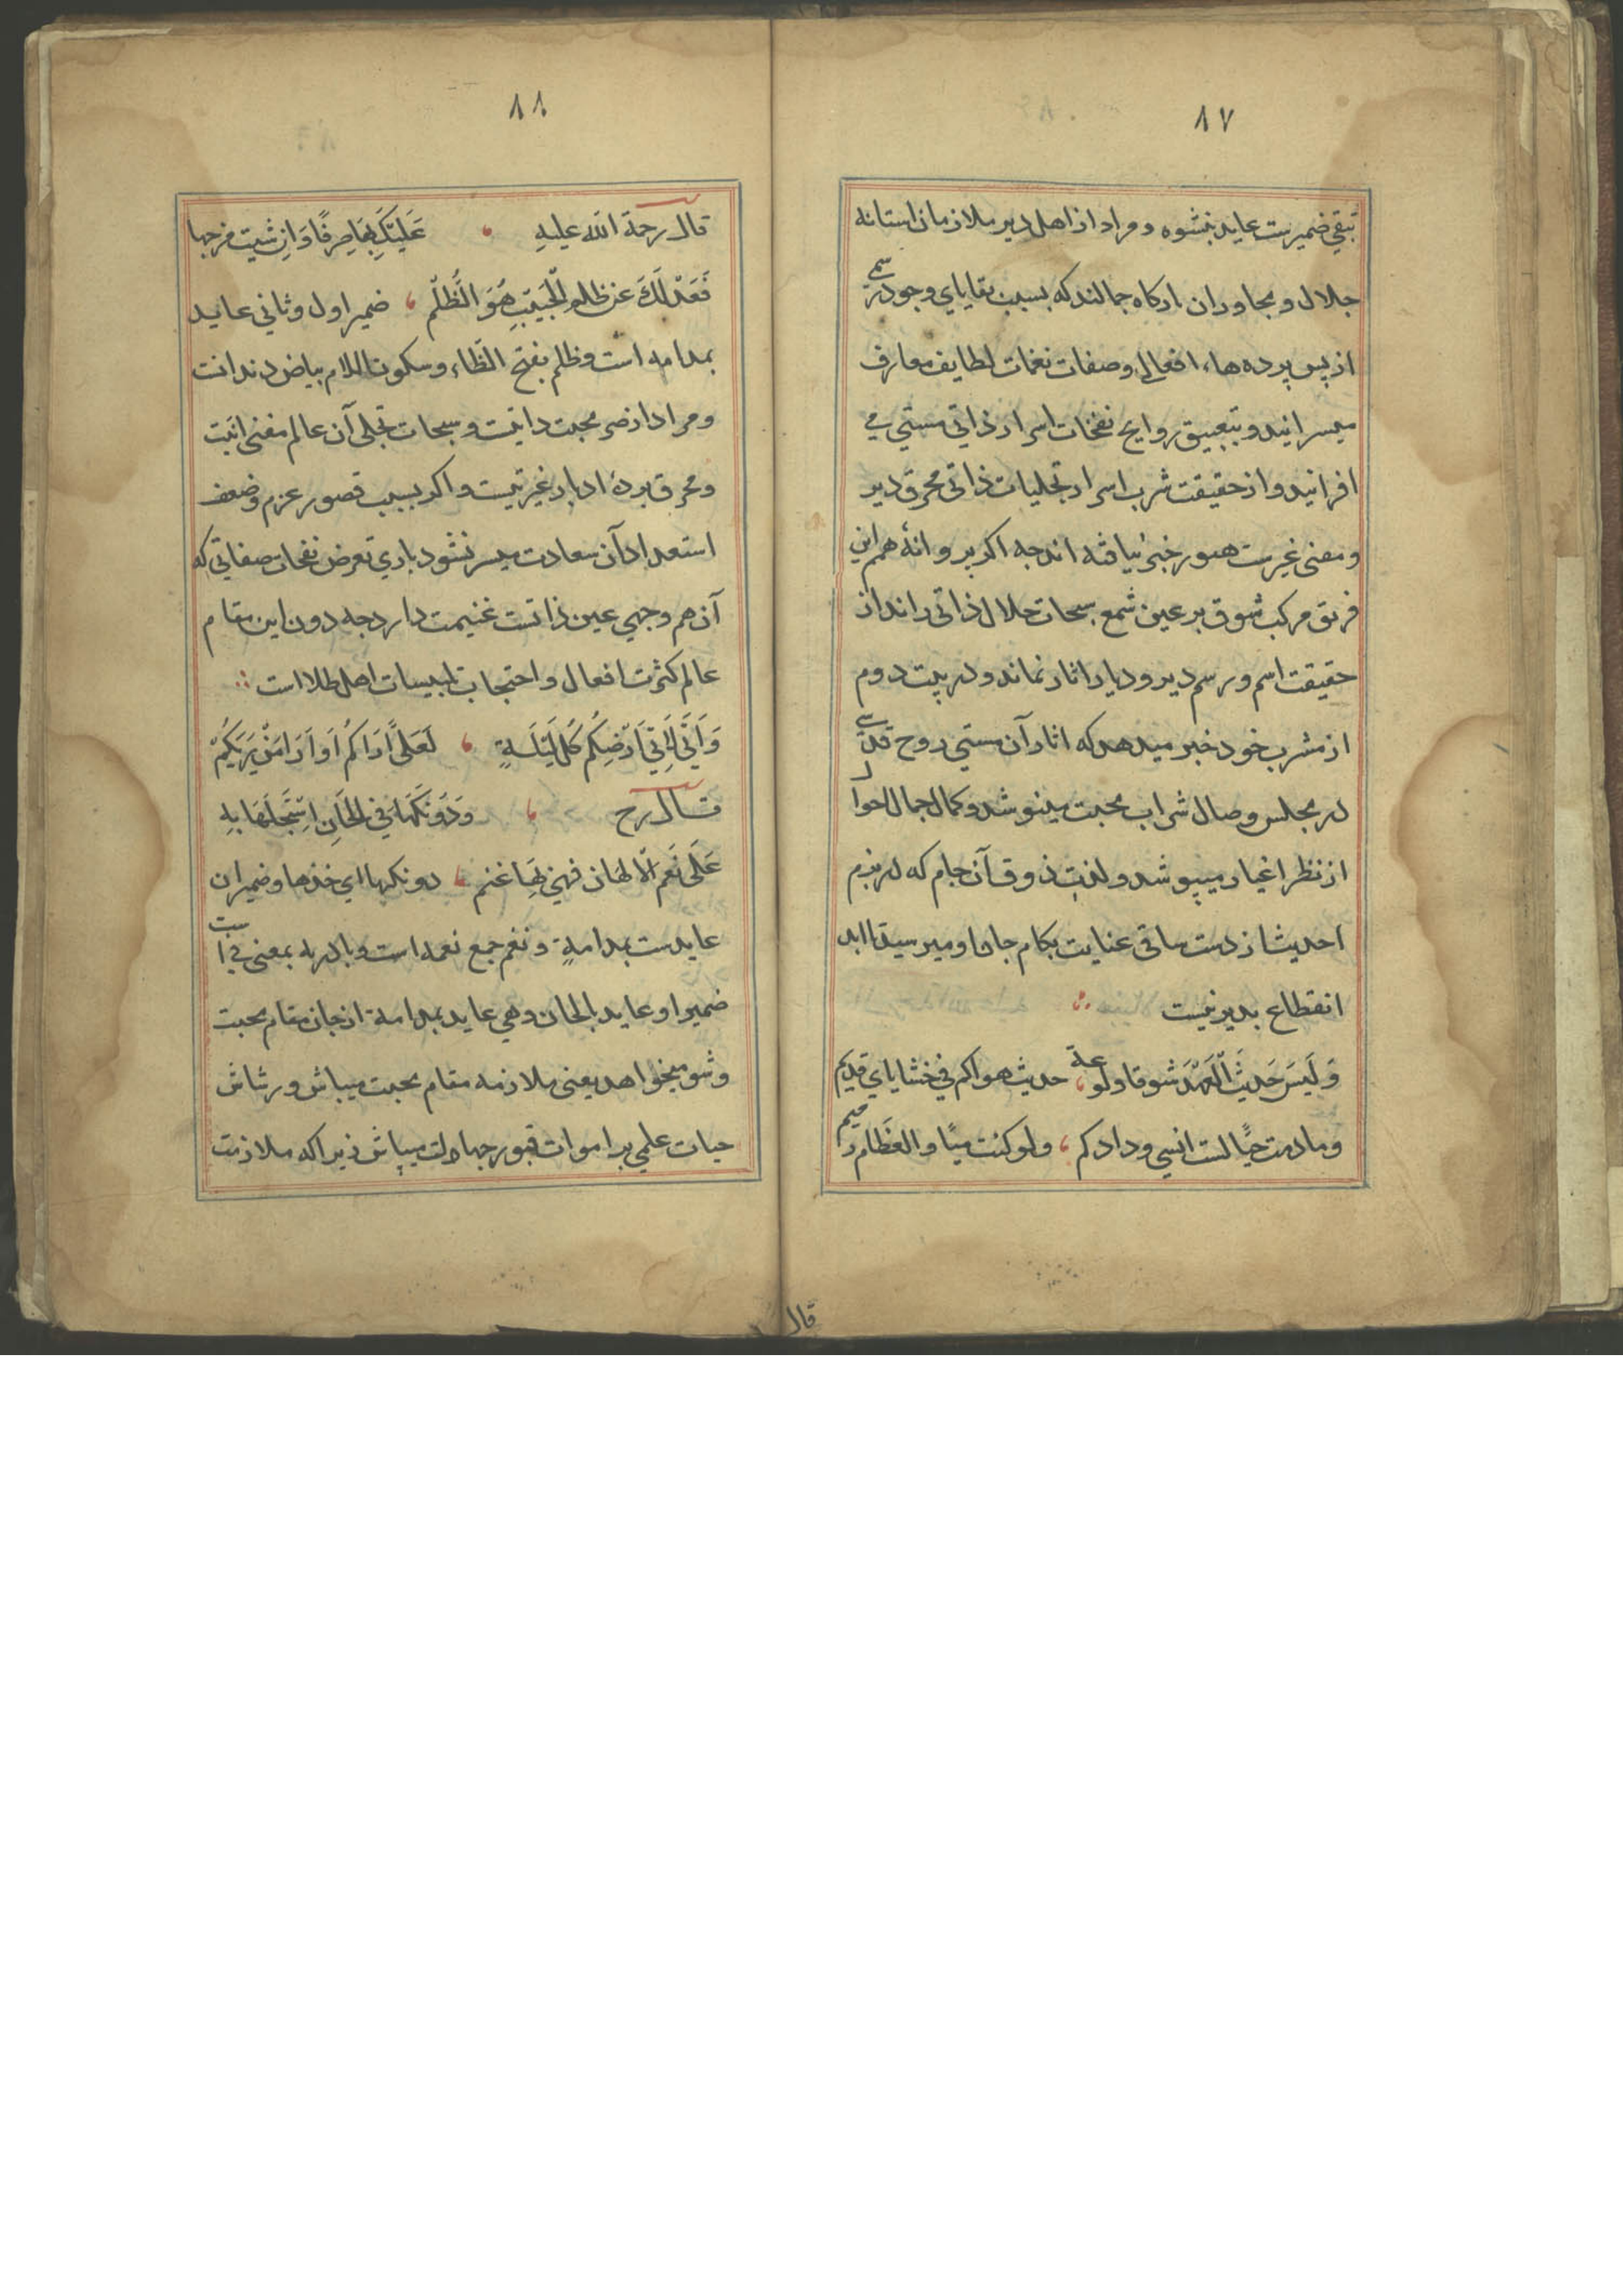 ٨٧
تبقی ضمیرست عاید بنشوه و مراد از اهل دیر ملازمان استانه
جلال و مجاوران بارکاه جمالند که بسبب بقایای وجود رسمی
از پس پرده‌هاء افعالی و صفات نغمات لطایف معارف
میسرانید و بتعبیق روایح نفخات اسرار ذاتی مستی می
افزانید و از حقیقت شرب اسرار تجلیات ذاتی محرق دیر
و مفنی غیرست هنوز خبر نیافته اند چه اکر پروانهٔ همم این
فریق مرکب شوق بر عین شمع سبحات جلال ذاتی راند از
حقیقت اسم و رسم دیر و دیار اثار نماند و در بیت دوم
از مشرب خود خبر میدهد که اثار آن مستی روح قدسی
در مجلس وصال شراب محبت مینوشد و کمال جمال احوال
از نظر اغیار میپوشد و لذت ذوق آن جام که در بزم
احدیث از دست ساقی عنایت بکام جان او میرسید تا ابد
انقطاع بدیر نیست
وَلَیسَ حَدیثُ الْعَهْدَ شوقا ولوعة حدیث هواکم فی خشایای قدیم
وما دمت حیًا لست انسی ودادکم ولو کنت میتًا والعظام رمیم
قال
٨٨
قال رحمة الله علیهِ عَلَیْکَ بِهَا صِرفًا وَاِن شیت مزجها
فَعَدْلُکَ عَن ظلم الْحَبِیبِ هُوَ الظُّلْم ضمیر اول و ثانی عاید
بمدامه است و ظلم بفتح الظاء و سکون اللام بیاض دندانت
و مراد از صر محبت ذاتیت و سبحات تجلی آن عالم مفنی انیت
و محرق بردهٔ ادبار غیریتست و اکر بسبب قصور عزم و ضعف
استعداد آن سعادت میسر نشود باری تعرض نفحات صفاتی که
آن هم وجهی عین ذاتست غنیمت دارد چه دون این مقام
عالم کثرت افعال و احتجاب تلبیسات اهل طلا است
وَاَنّی لَاِتی اَرْضِکُم کُلَّ لَیْلَةٍ لَعَلّی اَرَاکُم اَو اَرَا مَنْ یَرَیکُم
قال رح وَدُونَکَهَا فی الحَانِ اِسْتَجْلَهَا بِهِ
عَلَی نَعَم الالحان فهی لَهَا غنم دونکها ای خذها و ضمیران
عایدست بمدامهٍ و نغم جمع نغمه است و با در به بمعنی فی است
ضمیر او عاید بالحان و هی عاید بمدامة از حان مقام محبت
و شو میخواهد یعنی ملازمه مقام محبت میباش و رشاش
حیات علمی بر اموات قبور جهاولت میپاش زیرا که ملازمت